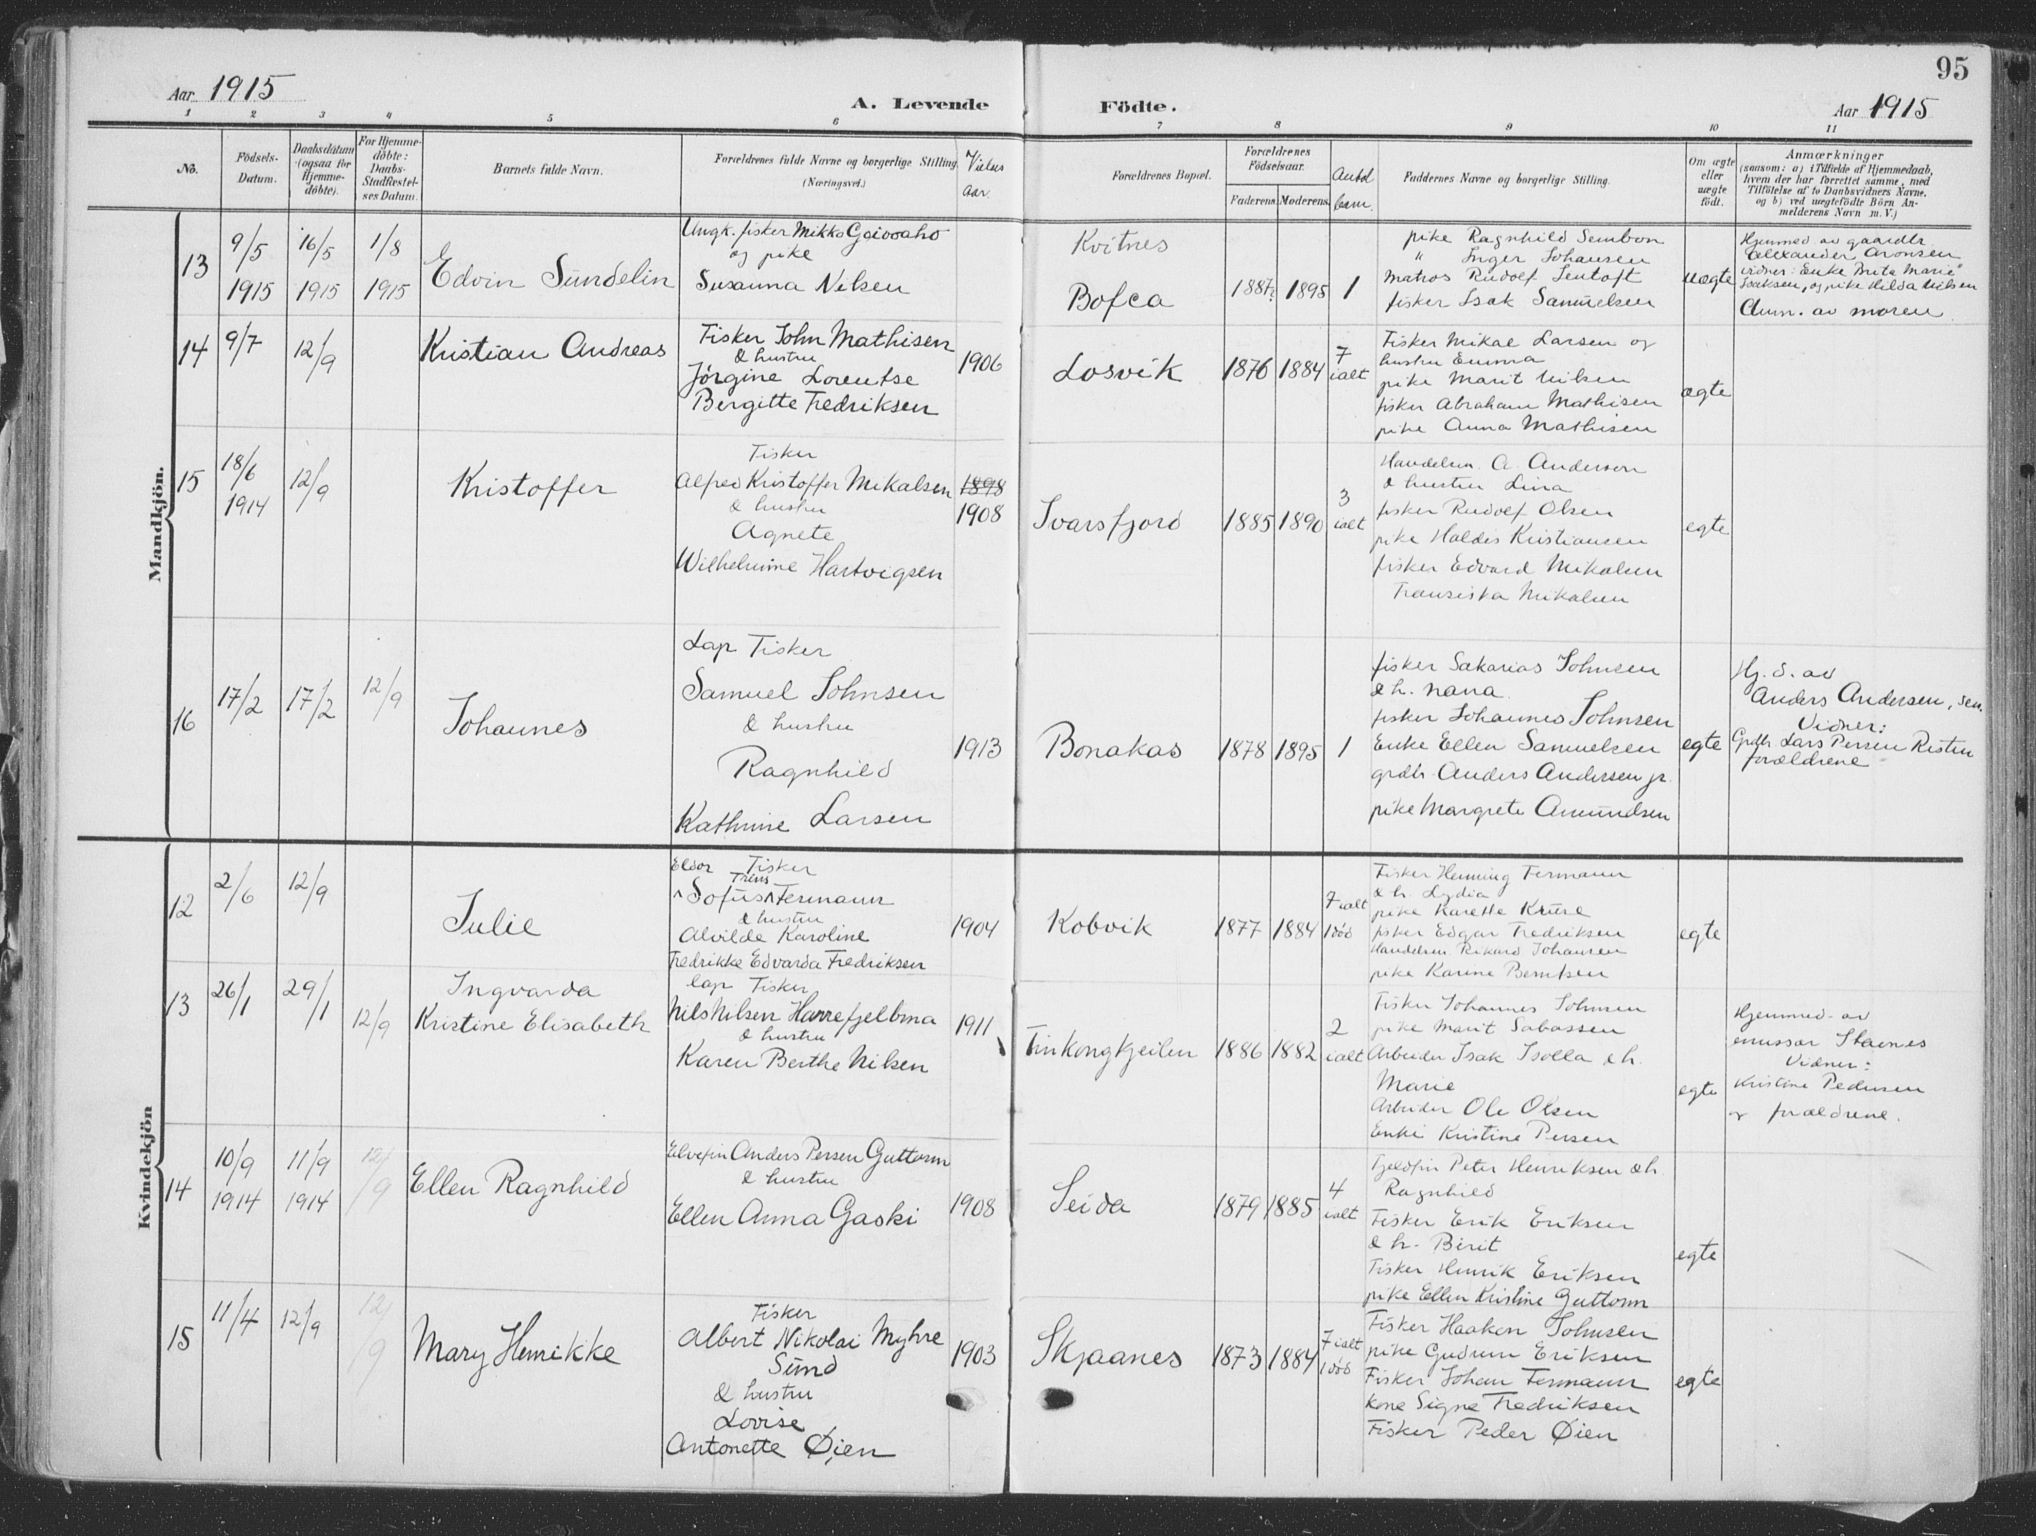 95
Aar 1915
A. Levende
Födte.
Aar 1915
1 2 3 4 5 6 7 8 9 10 11
No.
Födsels-
Datum.
Daabsdatum
(ogsaa for
Hjemme-
döbte).
For Hjemme-
döbte:
Daabs-
Stadfæstel-
ses Datum.
Barnets fulde Navn.
Forældrenes fulde Navne og borgerlige Stilling
(Næringsvei.)
Vielses
aar.
Forældrenes Bopæl.
Forældrenes
Födselsaar.
Faderens.
Moderens.
Antal
barn.
Faddernes Navne og borgerlige Stilling.
Om ægte
eller
uægte
födt.
Anmærkninger
(saasom: a) i Tilfælde af Hjemmedaab,
hvem der har forrettet samme, med
Tilföielse af to Daabsvidners Navne,
og b) ved uegtefödte Börn An-
melderens Navn m. V.)
Mandkjön.
13
9/5
1915
16/5
1915
1/8
1915
Edvin Sundelin
Ungk. fisker Mikko
og pike
Susanna Nilsen
Kvitnes
Bofca
1887?
1895
1
pike Ragnhild Sembon
" Inger Johansen
Matros Rudolf
fisker Isak Samuelsen
uægte
Hjemmed av gaardbr.
Alexander Aronsen
vidner: Enke Marie
Isaksen, og pike Hilda Nilsen
Anm. av moren
14
9/7
12/9
Kristian Andreas
Fisker John Mathisen
& hustru
Jørgine Lorentse
Bergitte Fredriksen
1906
Losvik
1876
1884
7
ialt
Fisker Mikal Larsen og
hustru Emma
pike Marit Nilsen
fisker Abraham Mathisen
pike Anna Mathisen
ægte
15
18/6
1914
12/9
Kristoffer
Fisker
Alfred Kristoffer Mikalsen
& hustru
Agnete
Wilhelmine Hartvigsen
1898
1908
Ivarsfjord
1885
1890
3
ialt
Handelsm. A. Anderson
& hustru Lina
fisker Rudolf Olsen
pike Haldis Kristiansen
fisker Edvard Mikalsen
Fransiska Mikalsen
egte
16
17/2
17/2
12/9
Johannes
Lap Fisker
Samuel Johnsen
& hustru
Ragnhild
Kathrine Larsen
1913
Bonakas
1878
1895
1
fisker Sakarias Johnsen
& h. Nana.
fisker Johannes Johnsen
Enke Ellen Samuelsen
grdbr. Anders Andersen jr.
pike Margrete Amundsen
egte
Hj. d. av
Anders Andersen, sen.
Vidner:
Grdbr Lars Persen Risten
forældrene
Kvindekjön
12
2/6
12/9
Julie
Eldor Fisker
Trens
Sofus Fermann
& hustru
Alvilde Karoline
Fredrikke Edvarda Fredriksen
1904
Kobvik
1877
1884
7 ialt
1 död
Fisker Henning Fermann
& h. Lydia
pike Karette Kruse
fisker Edgar Fredriksen
Handelsm. Rikard Johansen
pike Karine Berntsen
egte
13
26/1
29/1
12/9
Ingvarda
Kristine Elisabeth
lap Fisker
Nils Nilsen Harrefjelbma
& hustru
Karen Berthe Nilsen
1911
Finkongkjeilen
1886
1882
2
ialt
Fisker Johannes Johnsen
pike Marit Sabassen
Arbeider Isak Isolla & h.
Marie
Arbeider Ole Olsen
Enke Kristine Persen
egte
Hjemmed. av
emissær Staenes
Vidner:
Kristine Pedersen
og forældrene.
14
10/9
1914
11/9
1914
12/9
Ellen Ragnhild
Elvefin Anders Persen Guttorm
& hustru
Ellen Anna Gaski
1908
Seida
1879
1885
4
ialt
Fjeldfin Peter Henriksen & h.
Ragnhild
Fisker Erik Eriksen
& h. Berit
Fisker Henrik Eriksen
pike Ellen Kristine Guttorm
egte
15
11/4
12/9
12/9
Mary Henrikke
Fisker
Albert Nikolai Myhre
Sund
& hustru
Lovise
Antonette Øien
1903
Skjaanes
1873
1884
7 ialt
1 död
Fisker Haakon Johnsen
pike Gudrun Eriksen
Fisker Johan Fermann
Kone Signe Fredriksen
Fisker Peder Øien
egte